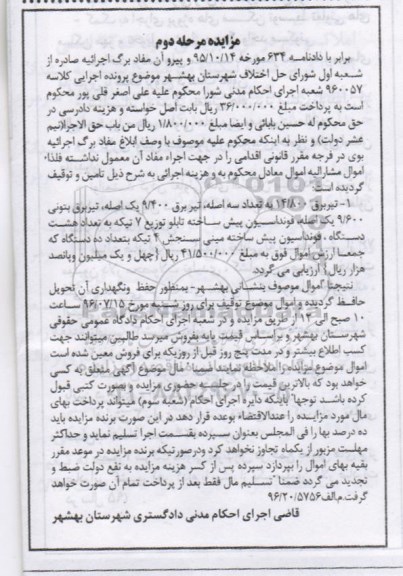 مزایده مرحله دوم
برابر با دادنامه ۶۳۴ مورخه ۹۵/۱۰/۱۴ و پیرو آن مفاد برگ اجرائیه صادره از
شعبه اول شورای حل اختلاف شهرستان بهشهر موضوع پرونده اجرایی کلاسه
۹۶۰۰۵۷ شعبه اجرای احکام مدنی شورا محکوم علیه علی اصغر قلی پور محکوم
است به پرداخت مبلغ ۳۶/۰۰۰/۰۰۰ ریال بابت اصل خواسته و هزینه دادرسی در
حق محکوم له حسین بابائی و ایضا مبلغ ۱/۸۰۰/۰۰۰ ریال من باب حق الاجرا(نیم
عشر دولت) و نظر به اینکه محکوم علیه موصوف با وصف ابلاغ مفاد برگ اجرائیه
بوی در فرجه مقرر قانونی اقدامی را در جهت اجراء مفاد آن معمول نداشته فلذا؛
اموال مشارالیه اموال معادل محکوم به و هزینه اجرائی به شرح ذیل تامین و توقیف
گردیده است:
۱- تیربرق ۱۴/۸۰۰ به تعداد سه اصله، تیر برق ۹/۴۰۰ یک اصله، تیربرق بتونی
۹/۶۰۰ یک اصله، فونداسیون پیش ساخته تابلو توزیع ۷ تیکه به تعداد هشت
دستگاه، فونداسیون پیش ساخته مینی سنجش ۴ تیکه بتعداد ده دستگاه که
جمعا ارزش اموال فوق به مبلغ ۴۱/۵۰۰/۰۰۰ ریال (چهل و یک میلیون وپانصد
هزار ریال) ارزیابی می گردد.
نتیجتا اموال موصوف بنشانی بهشهر- بمنظور حفظ ونگهداری آن تحویل
حافظ گردیده و اموال موضوع توقیف برای روز شنبه مورخ ۹۶/۰۷/۱۵ ساعت
۱۰ صبح الی ۱۲ از طریق مزایده و در شعبه اجرای احکام دادگاه عمومی حقوقی
شهرستان بهشهر و براساس قیمت پایه بفروش میرسد طالبین میتوانند جهت
کسب اطلاع بیشتر و در مدت پنج روز قبل از روزیکه برای فروش معین شده است
اموال موضوع مزایده را ملاحظه نمایند ضمنا" مال موضوع آگهی متعلق به کسی
خواهد بود که بالاترین قیمت را در جلسه حضوری مزایده و بصورت کتبی قبول
کرده باشد. توجها" باینکه دایره اجرای احکام (شعبه سوم) میتواند پرداخت بهای
مال مورد مزایده را عندالاقتضاء بوعده قرار دهد در این صورت برنده مزایده باید
ده درصد بها را فی المجلس بعنوان سپرده بقسمت اجرا تسلیم نماید و حداکثر
مهلت مزبور از یکماه تجاوز نخواهد کرد ودرصورتیکه برنده مزایده در موعد مقرر
بقیه بهای اموال را بپردازد سپرده پس از کسر هزینه مزایده به نفع دولت ضبط و
تجدید می گردد ضمنا" تسلیم مال فقط بعد از پرداخت تمام آن صورت خواهد
گرفت.م.الف۹۶/۲۰/۵۷۵۶
قاضی اجرای احکام مدنی دادگستری شهرستان بهشهر